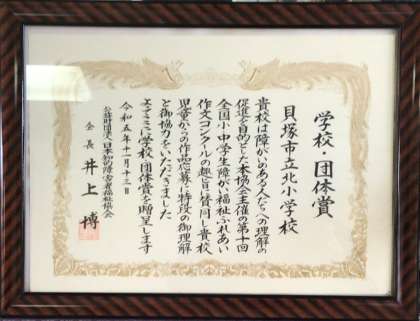 学校・団体賞
貝塚市立北小学校
貴校は障がいのある人たちへの理解の
促進を目的とした本協会主催の第十回
全国小中学生障がい福祉ふれあい
作文コンクールの趣旨に賛同し貴校
児童からの作品応募に特段の御理解
と御協力をいただきました
よってここに学校・団体賞を贈呈します
令和五年十一月十三日
公益財団法人日本知的障害者福祉協会
会長 井上 博